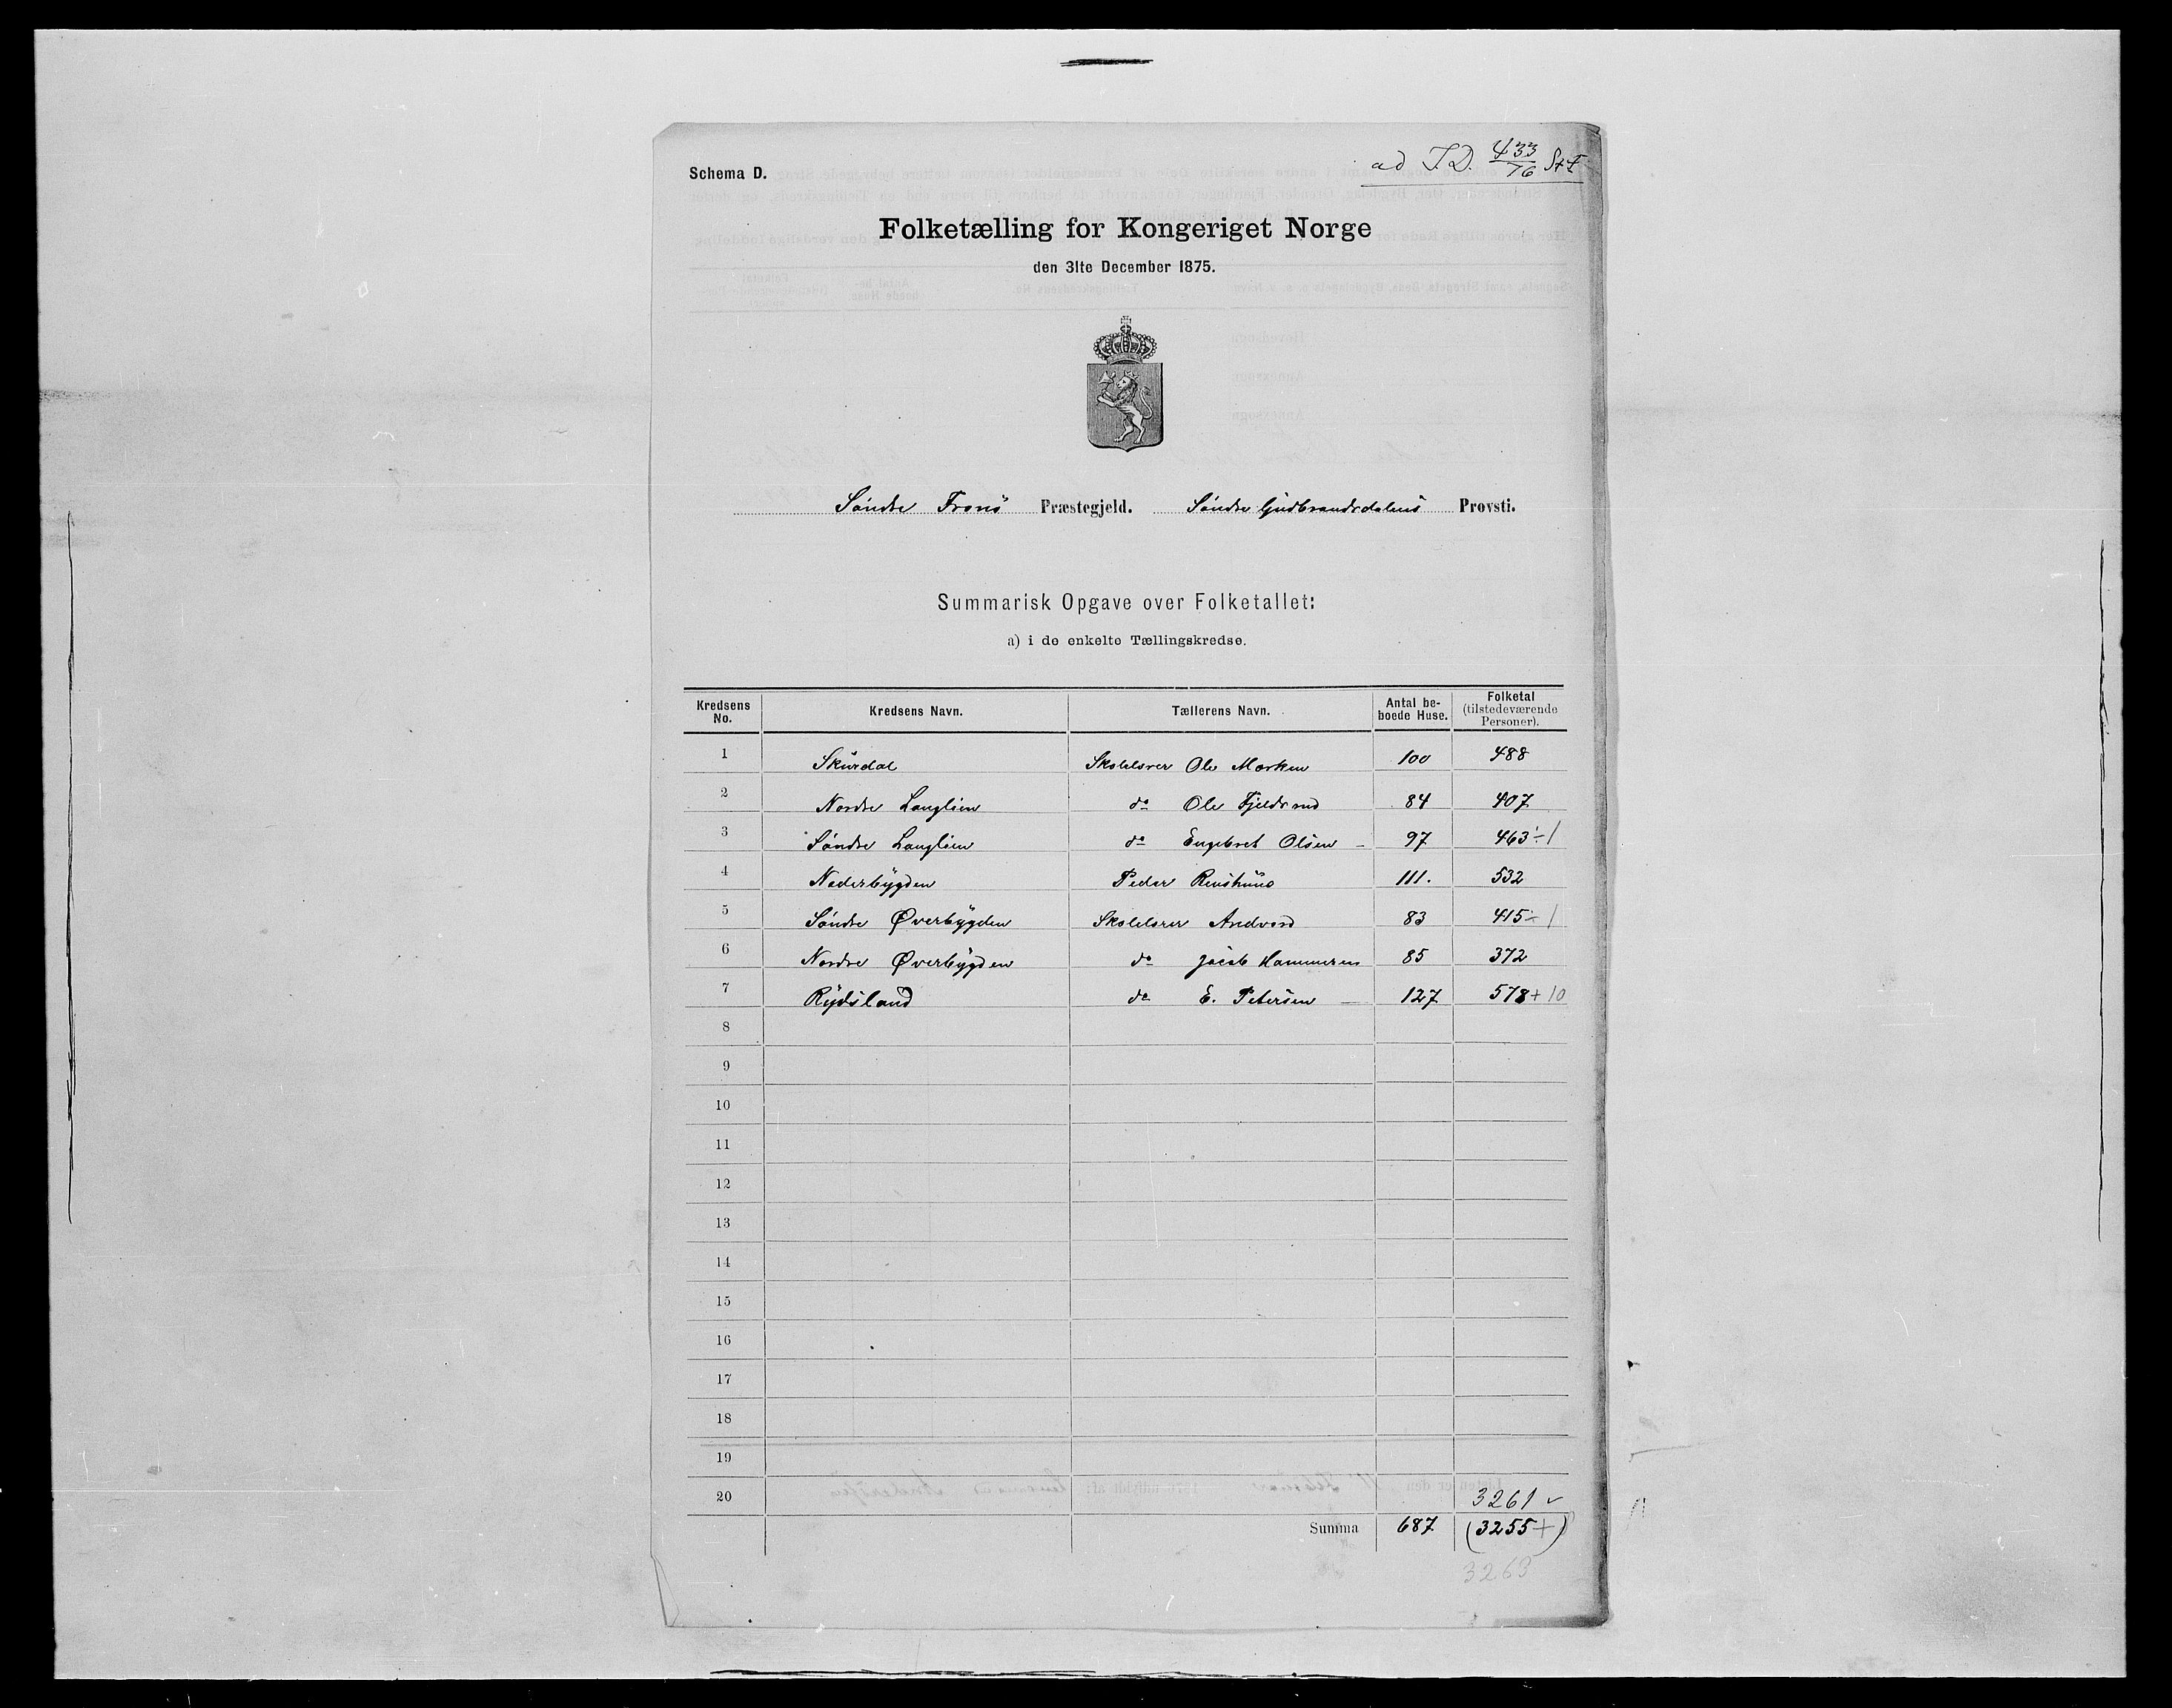 ad T.D. 433/76 StF
Schema D.
Folketælling for Kongeriget Norge
den 31te December 1875.
Søndre Frons Præstegjeld. Søndre Gudbrandsdalens Provsti.
Summarisk Opgave over Folketallet:
a) i de enkelte Tællingskredse.
Kredsens No. Kredsens Navn. Tællerens Navn. Antal beboede Huse. Folketal (tilstedeværende Personer).
1 Skurdal Skolelærer Ole Morken 100 488
2 Nordre Lauglien do Ole Fjeldsrud 84 407
3 Søndre Lauglien do Engebret Olsen 97 463 ÷ 1
4 Nederbygden Peder 111. 532
5 Søndre Øverbygden Skolelærer Andvord 83 415 ÷ 1
6 Nordre Øverbygden do Jacob Hammeren 85 372
7 do E. Petersen 127 578 + 10
8
9
10
11
12
13
14
15
16
17
18
19
20 3261 ✓
Summa 687 (3255+)
3263